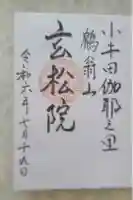 小牛田伽耶之里
鷂翁山
玄松院
令和六年十月十九日